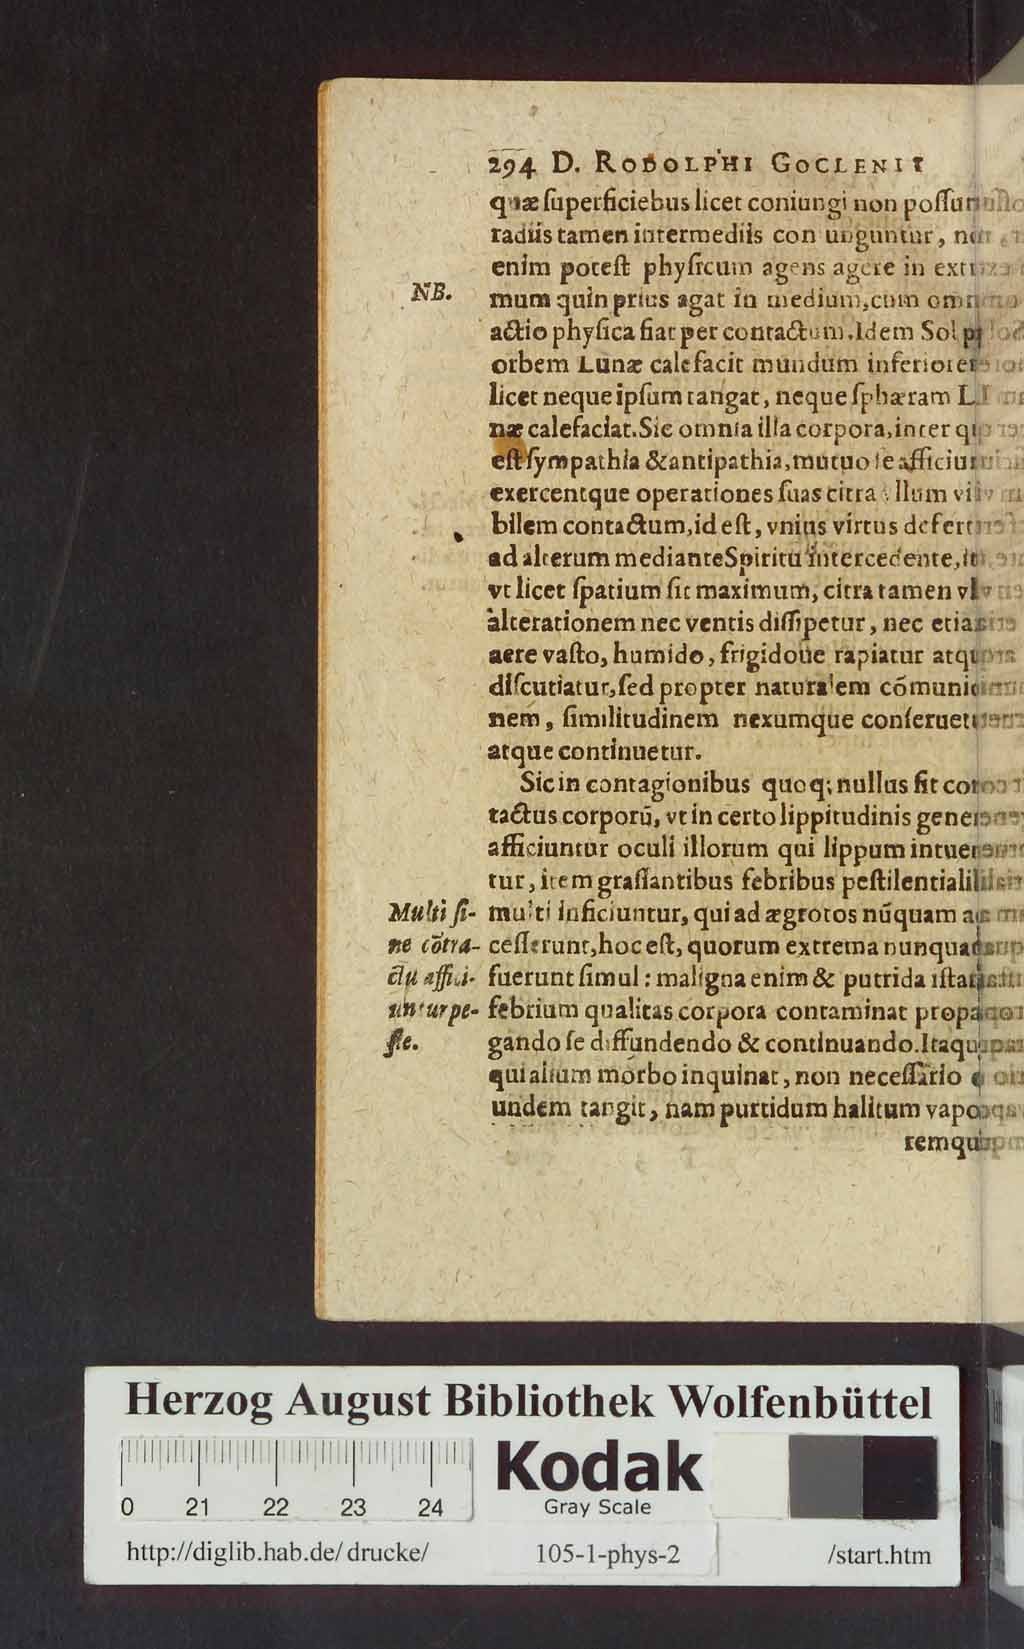 294 D. RODOLPHI GOCLENII
quæ ſuperficiebus licet coniungi non poſſun
radiis tamen intermediis coniunguntur, non
enim poteſt phyſicum agens agere in extre
NB.
mum quin prius agat in medium, cum omn
actio phyſica fiat per contactum. Idem Sol p
orbem Lunæ calefacit mundum inferiorem
licet neque ipſum tangat, neque ſphæram Lu
næ calefaciat. Sic omnia illa corpora, inter qu
eſt ſympathia & antipathia, mutuo ſe afficiun
exercentque operationes ſuas citra vllum viſi
bilem contactum, id eſt, vnius virtus defert
ad alterum mediante Spiritu intercedente, it
vt licet ſpatium ſit maximum, citra tamen vl
alterationem nec ventis diſſipetur, nec etia
aere vaſto, humido, frigidoue rapiatur atqu
diſcutiatur, ſed propter naturalem cõmunio
nem, ſimilitudinem nexumque conſeruet
atque continuetur.
Sic in contagionibus quoq; nullus fit con
tactus corporū, vt in certo lippitudinis gene
afficiuntur oculi illorum qui lippum intuen
tur, item graſſantibus febribus peſtilentiali
Multi ſi-
multi inficiuntur, qui ad ægrotos nūquam a
ne cõtra-
ceſſerunt, hoc eſt, quorum extrema nunqua
ctu affici-
fuerunt ſimul: maligna enim & putrida iſta
untur pe-
febrium qualitas corpora contaminat propa
ſte.
gando ſe diffundendo & continuando. Itaqu
qui alium morbo inquinat, non neceſſario
undem tangit, nam purtidum halitum vapo
remqu
Herzog August Bibliothek Wolfenbüttel
0 21 22 23 24
Kodak
Gray Scale
http://diglib.hab.de/drucke/ 105-1-phys-2 /start.htm